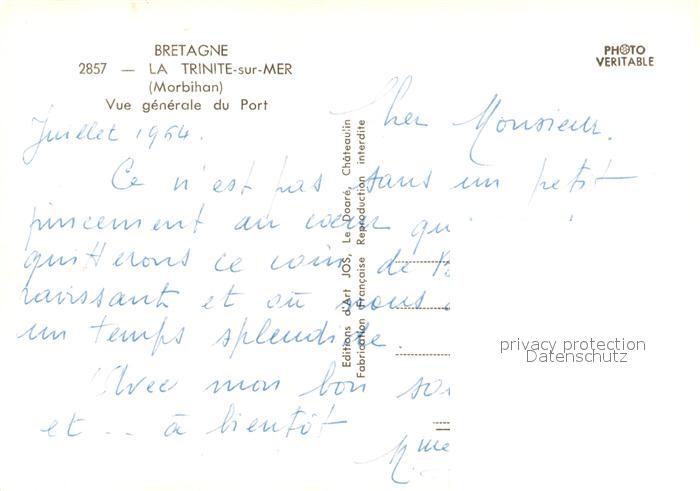 BRETAGNE
2857 — LA TRINITE-sur-MER
(Morbihan)
Vue générale du Port
PHOTO
VERITABLE
Juillet 1964.
Cher Monsieur.
Ce n'est pas sans un petit
pincement au coeur qu
quitterons ce coin de
ravissant et où nous
un temps splendide.
Avec mon bon
et .. à bientôt
Mme
Editions d'Art JOS, Le Doaré, Châteaulin
Fabrication Française Reproduction interdite
privacy protection
Datenschutz